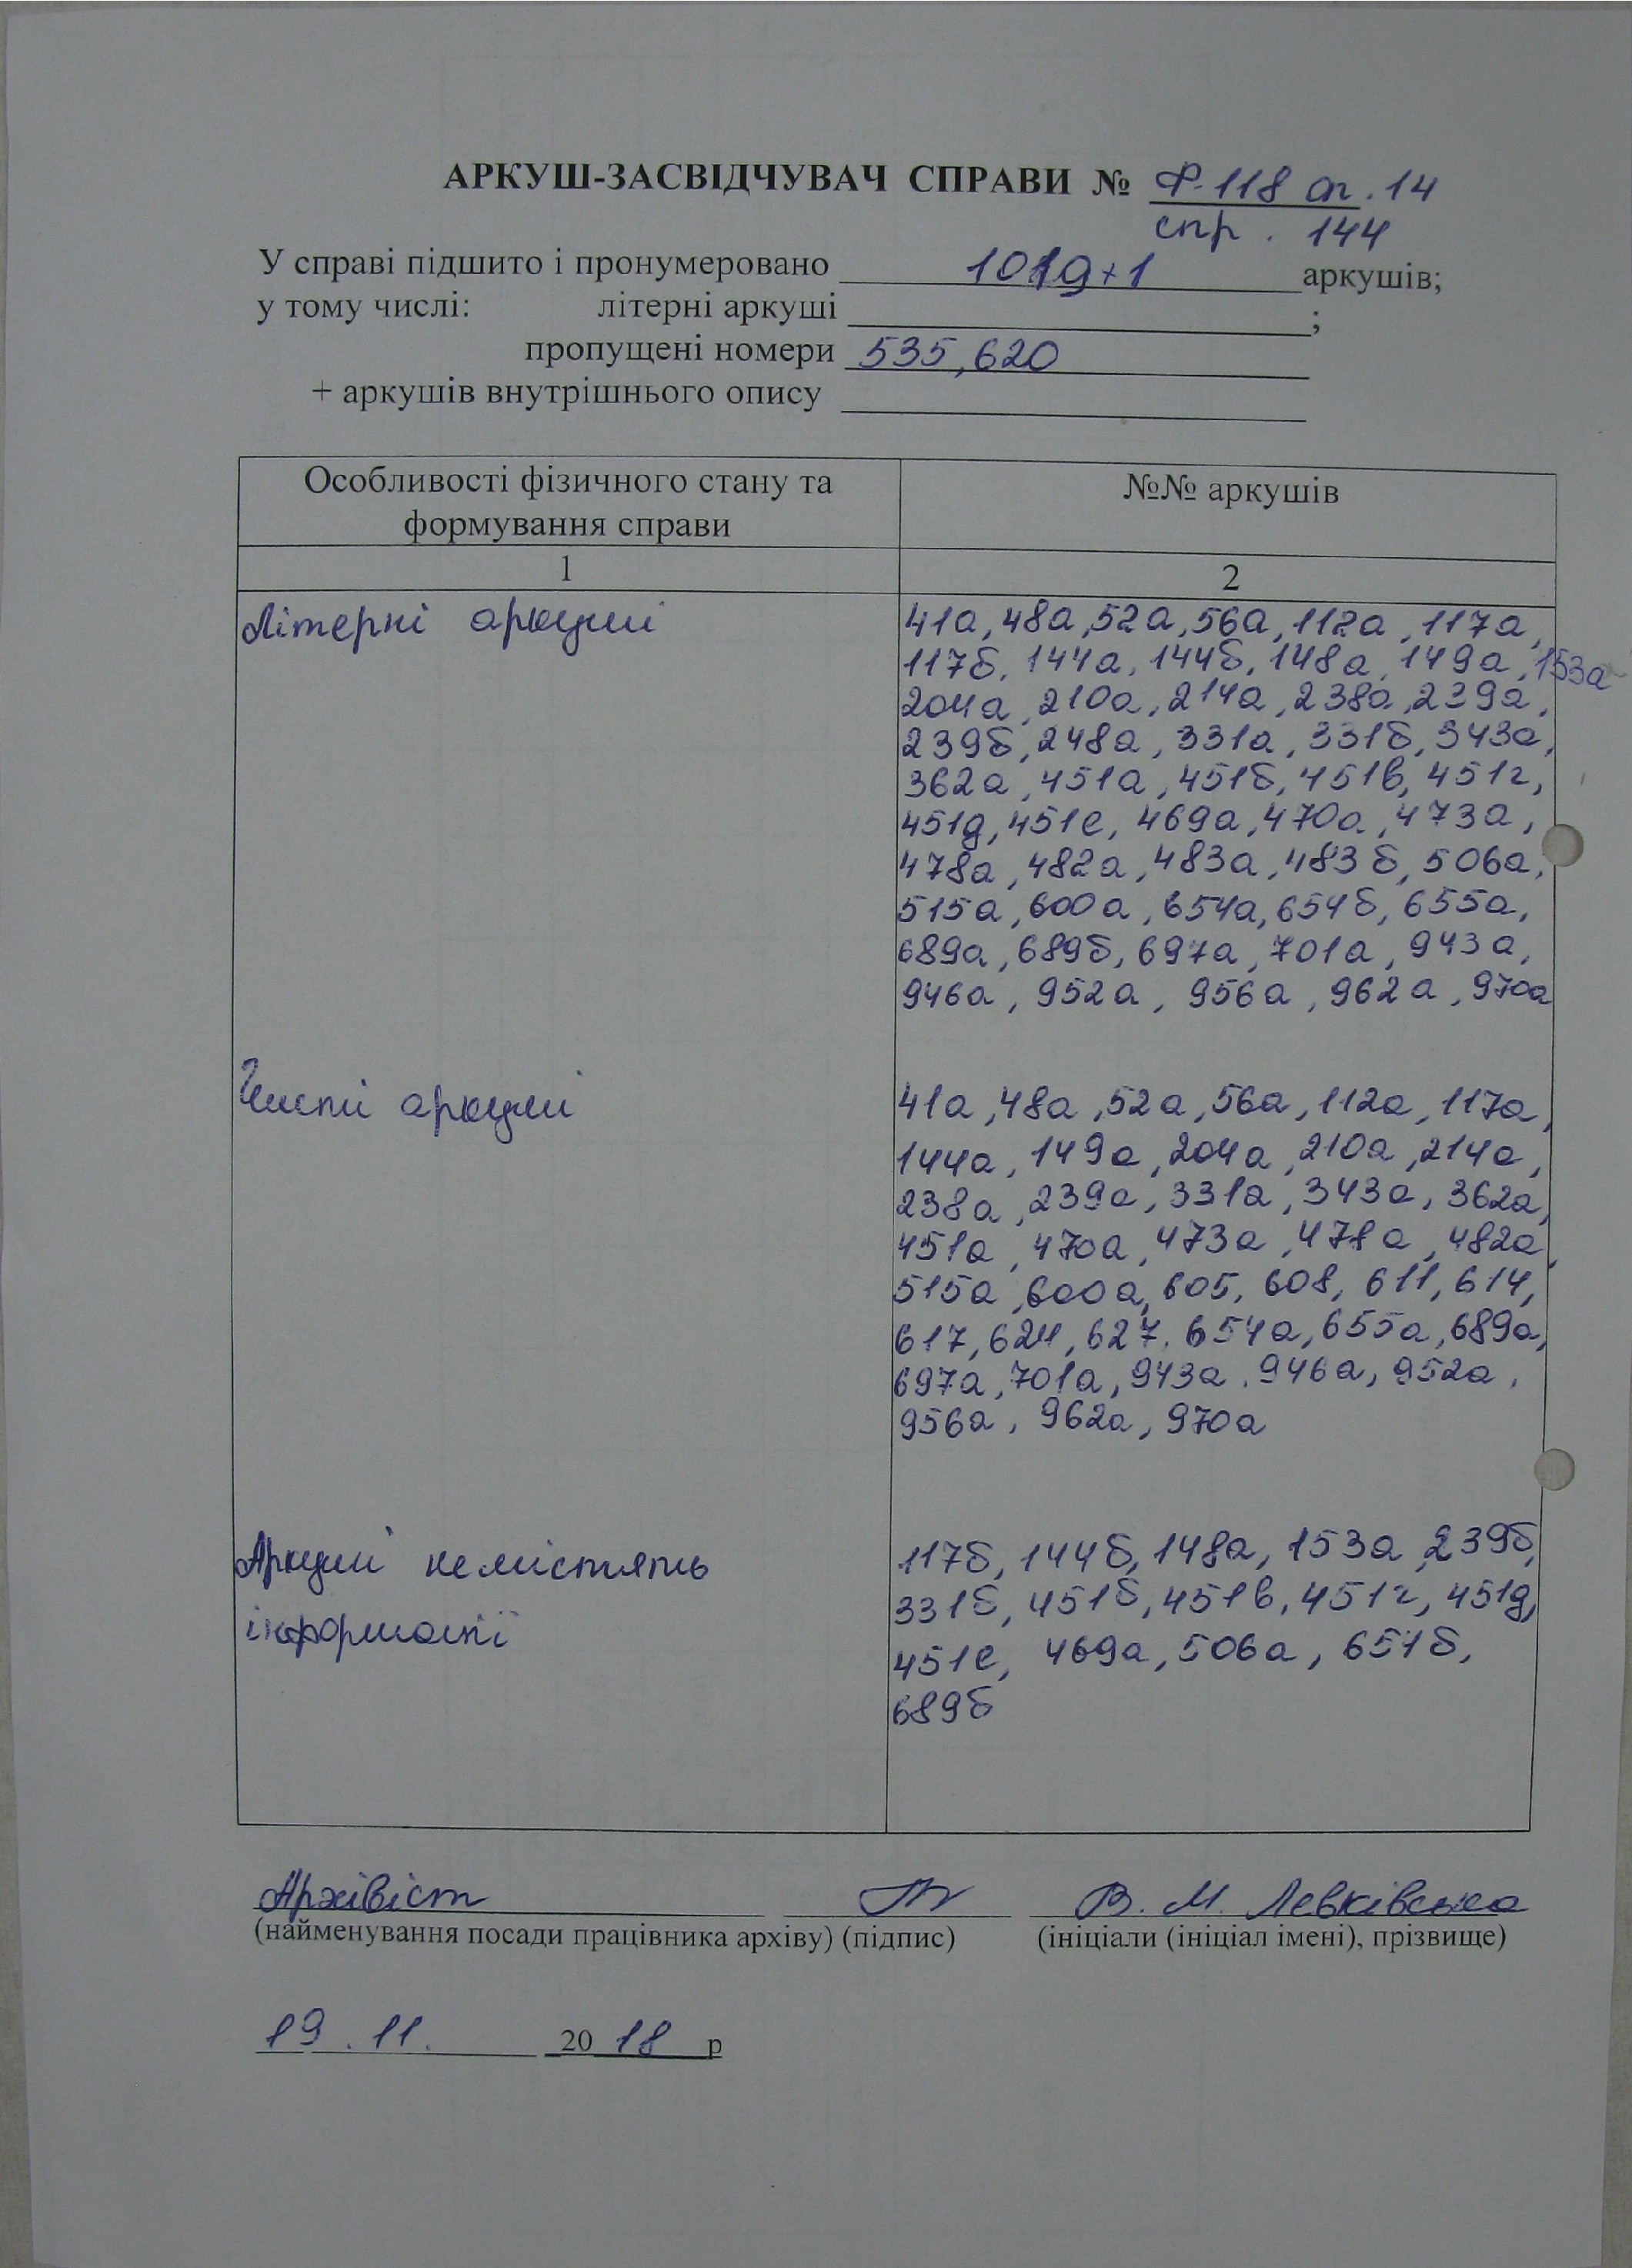 АРКУШ-ЗАСВІДЧУВАЧ СПРАВИ № Ф.118 оп.14
спр. 144
У справі підшито і пронумеровано 1019+1 аркушів;
у тому числі: літерні аркуші ;
пропущені номери 535, 620
+ аркушів внутрішнього опису
Особливості фізичного стану та формування справи
№№ аркушів
1
2
Літерні аркуші
41а, 48а, 52а, 56а, 112а, 117а,
117б, 144а, 144б, 148а, 149а, 153а
204а, 210а, 214а, 238а, 239а,
239б, 248а, 331а, 331б, 343а,
362а, 451а, 451б, 451в, 451г,
451д, 451е, 469а, 470а, 473а,
478а, 482а, 483а, 483б, 506а,
515а, 600а, 654а, 654б, 655а,
689а, 689б, 697а, 701а, 943а,
946а, 952а, 956а, 962а, 970а
Чисті аркуші
41а, 48а, 52а, 56а, 112а, 117а,
144а, 149а, 204а, 210а, 214а,
238а, 239а, 331а, 343а, 362а,
451а, 470а, 473а, 478а, 482а,
515а, 600а, 605, 608, 611, 614,
617, 624, 627, 654а, 655а, 689а,
697а, 701а, 943а, 946а, 952а,
956а, 962а, 970а
Аркуші не містять
інформації
117б, 144б, 148а, 153а, 239б,
331б, 451б, 451в, 451г, 451д,
451е, 469а, 506а, 651б,
689б
Архівіст В. М. Левківська
(найменування посади працівника архіву) (підпис) (ініціали (ініціал імені), прізвище)
19.11. 2018 р